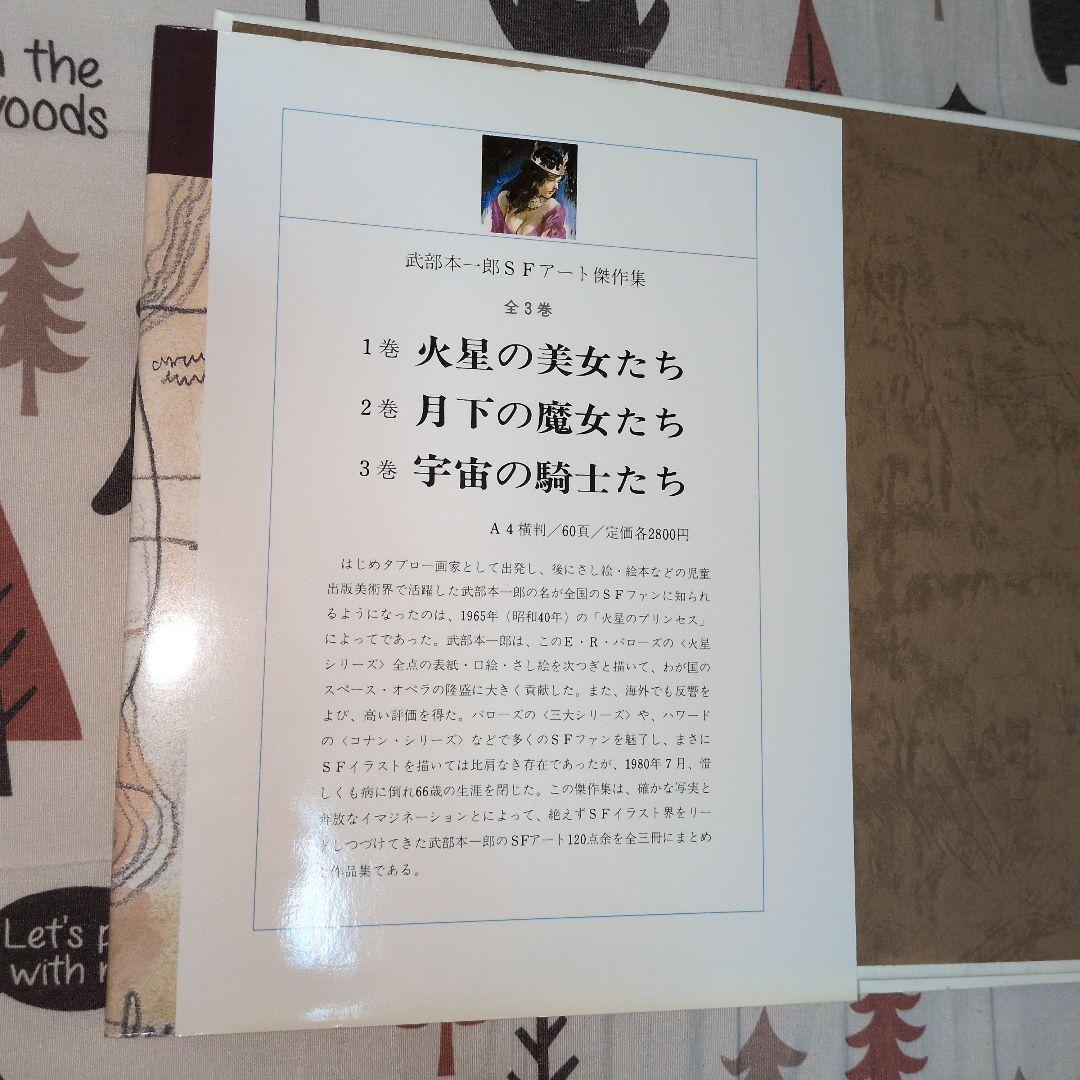 the
woods
武部本一郎ＳＦアート傑作集
全３巻
１巻 火星の美女たち
２巻 月下の魔女たち
３巻 宇宙の騎士たち
Ａ４横判／60頁／定価各2800円
はじめタブロー画家として出発し、後にさし絵・絵本などの児童
出版美術界で活躍した武部本一郎の名が全国のＳＦファンに知られ
るようになったのは、1965年（昭和40年）の「火星のプリンセス」
によってであった。武部本一郎は、このＥ・Ｒ・バローズの〈火星
シリーズ〉全点の表紙・口絵・さし絵を次つぎと描いて、わが国の
スペース・オペラの隆盛に大きく貢献した。また、海外でも反響を
よび、高い評価を得た。バローズの〈三大シリーズ〉や、ハワード
の〈コナン・シリーズ〉などで多くのＳＦファンを魅了し、まさに
ＳＦイラストを描いては比肩なき存在であったが、1980年７月、惜
しくも病に倒れ66歳の生涯を閉じた。この傑作集は、確かな写実と
奔放なイマジネーションとによって、絶えずＳＦイラスト界をリー
ドしつづけてきた武部本一郎のSFアート120点余を全三冊にまとめ
作品集である。
Let's
with